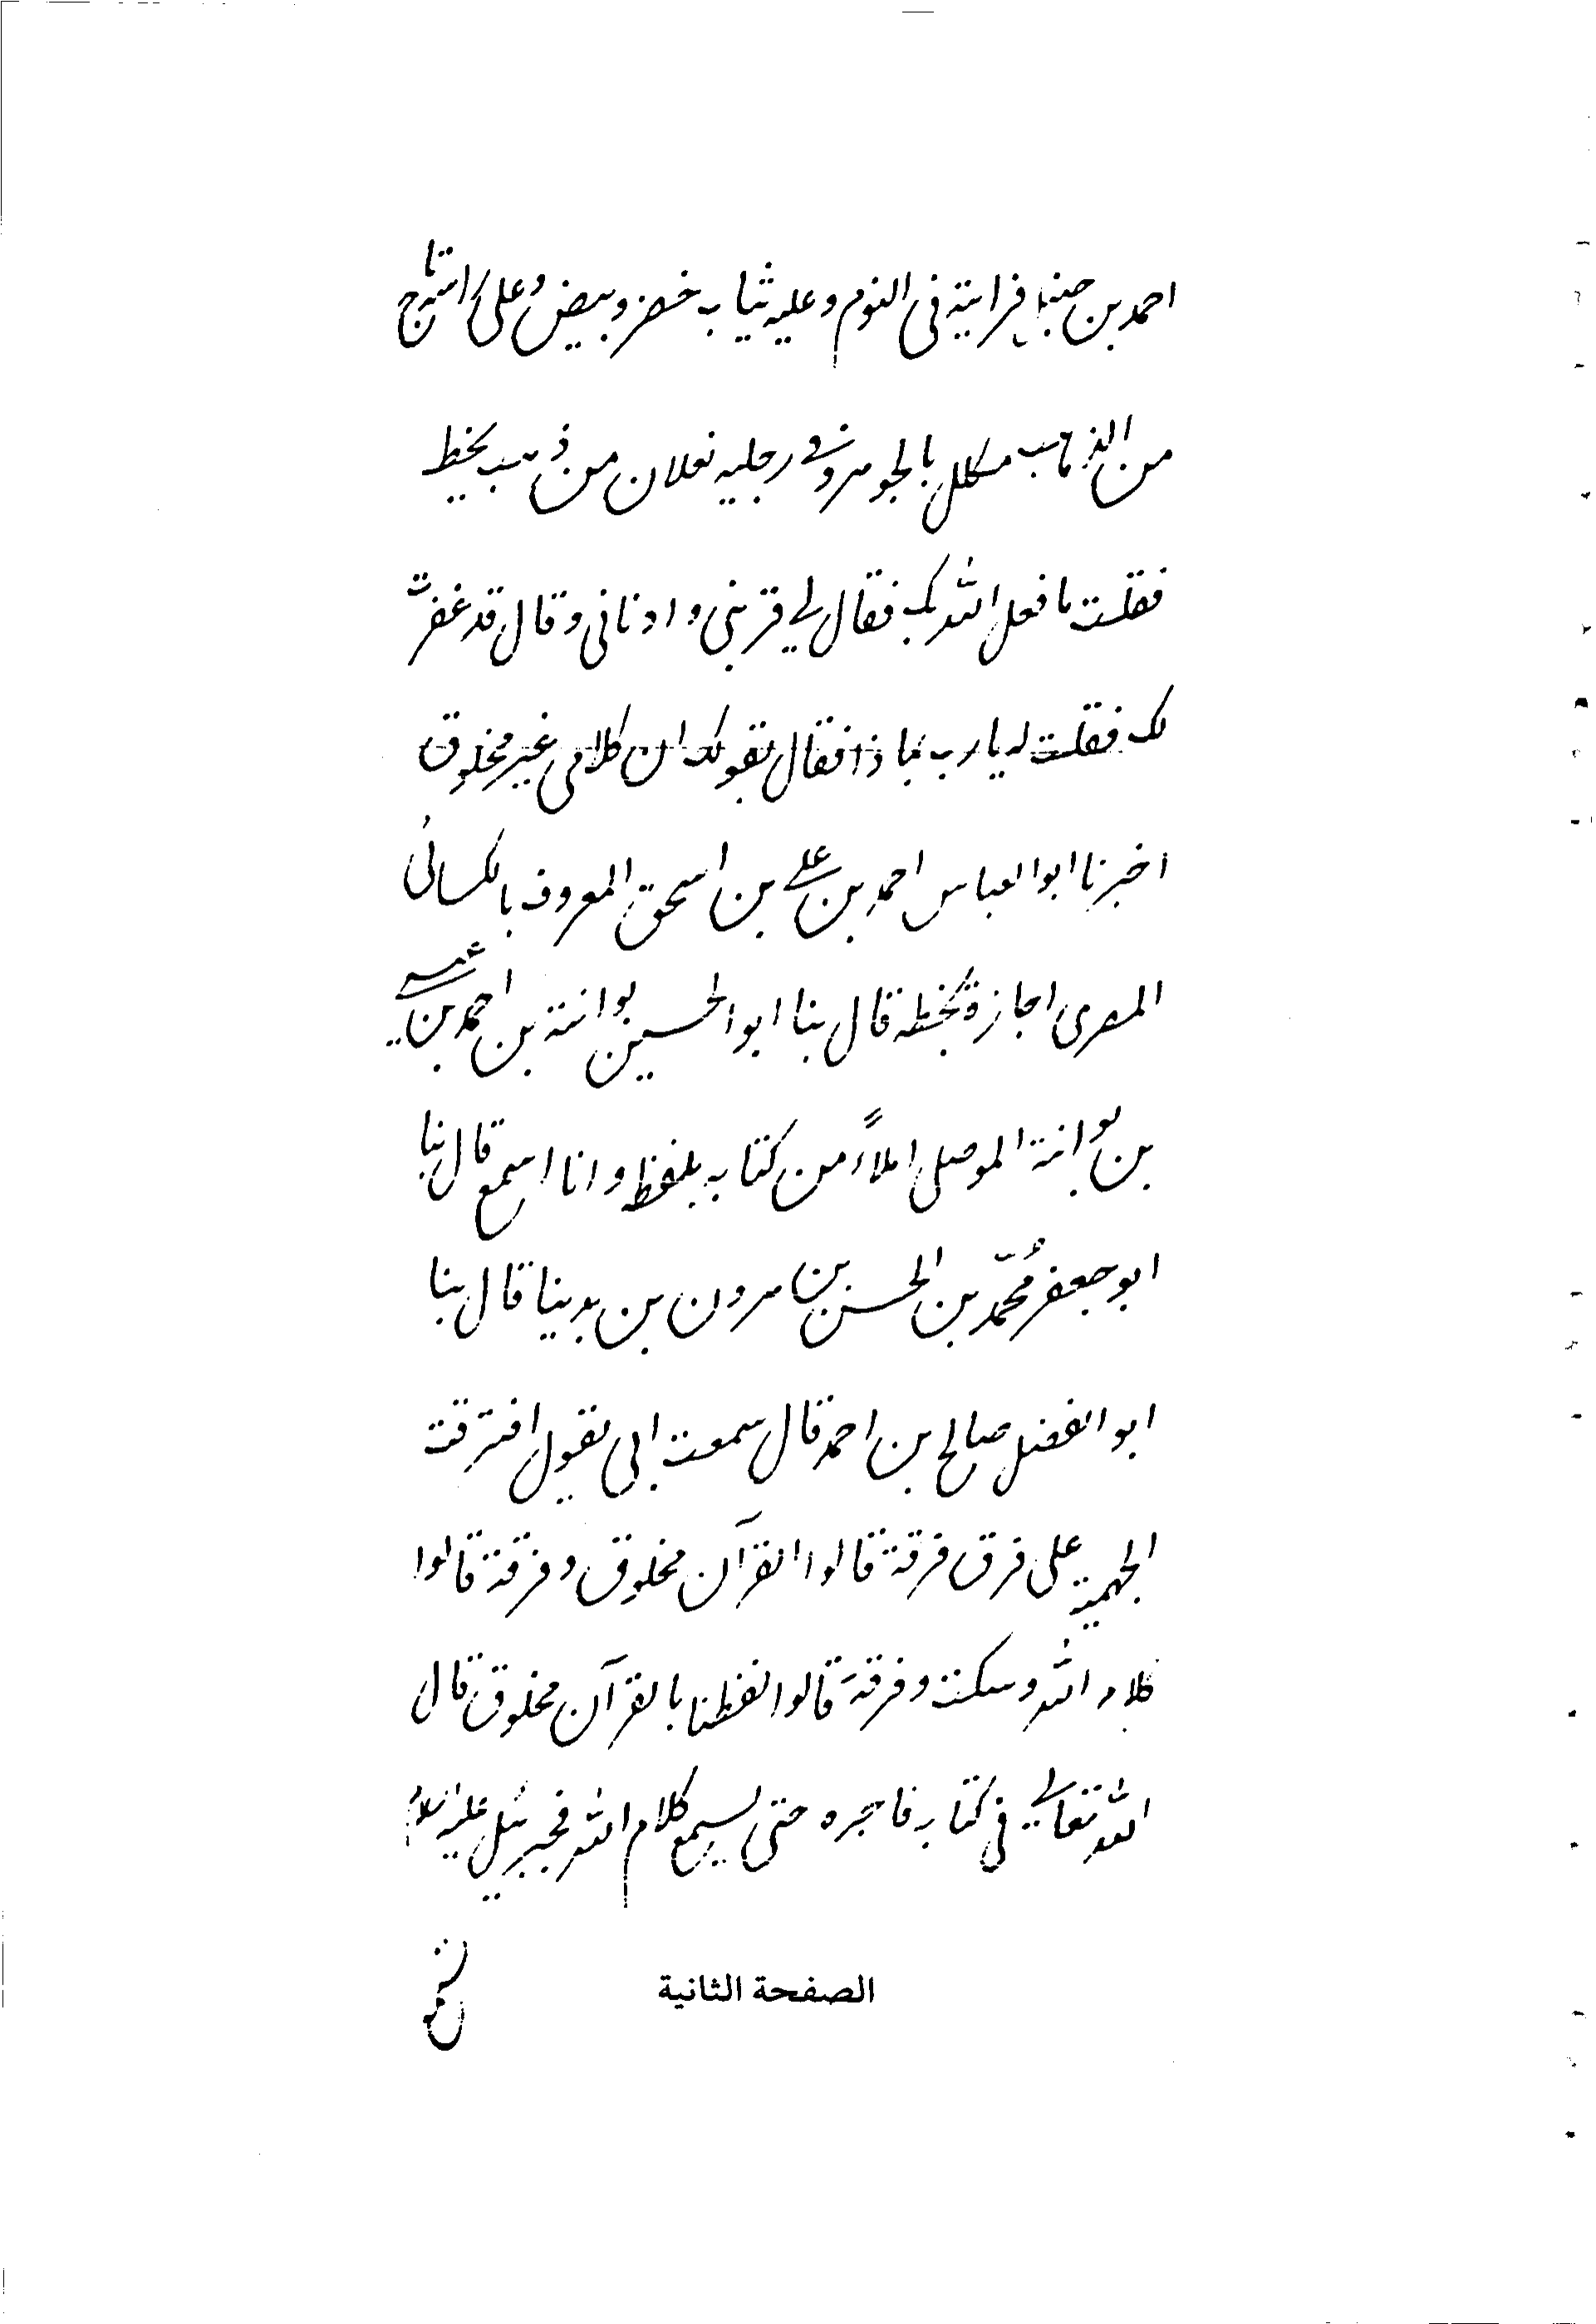 احمد بن حنبل فرايته فى النوم وعليه ثياب خضر وبيض وعلى راسه تاج
من الذهب مكلل بالجوهر وفى رجليه نعلان من ذهب يخط
فقلت ما فعل الله بك فقال لي قربنى وادنانى وقال قد غفرت
لك فقلت له يا رب بما ذا فقال بقولك ان كلامى غير مخلوق
اخبرنا ابو العباس احمد بن على بن اسحق المعروف بالكسائى
المصرى اجازة بخطه قال بنا ابو الحسين بوانة بن احمد بن
بن بوانة الموصلى املاءً من كتابه بلفظه وانا اسمع قال بنا
ابو جعفر مُحمّد بن الحسن بن هرون بن بدينا قال بنا
ابو الفضل صالح بن احمد قال سمعت ابى يقول افترقت
الجهمية على فرق فرقة قالوا القرآن مخلوق وفرقة قالوا
كلام الله وسكت وفرقة قالوا لفظنا بالقرآن مخلوق قال
الله تعالى في كتابه فاجره حتى يسمع كلام الله فجبرئيل عليه السلام
الصفحة الثانية